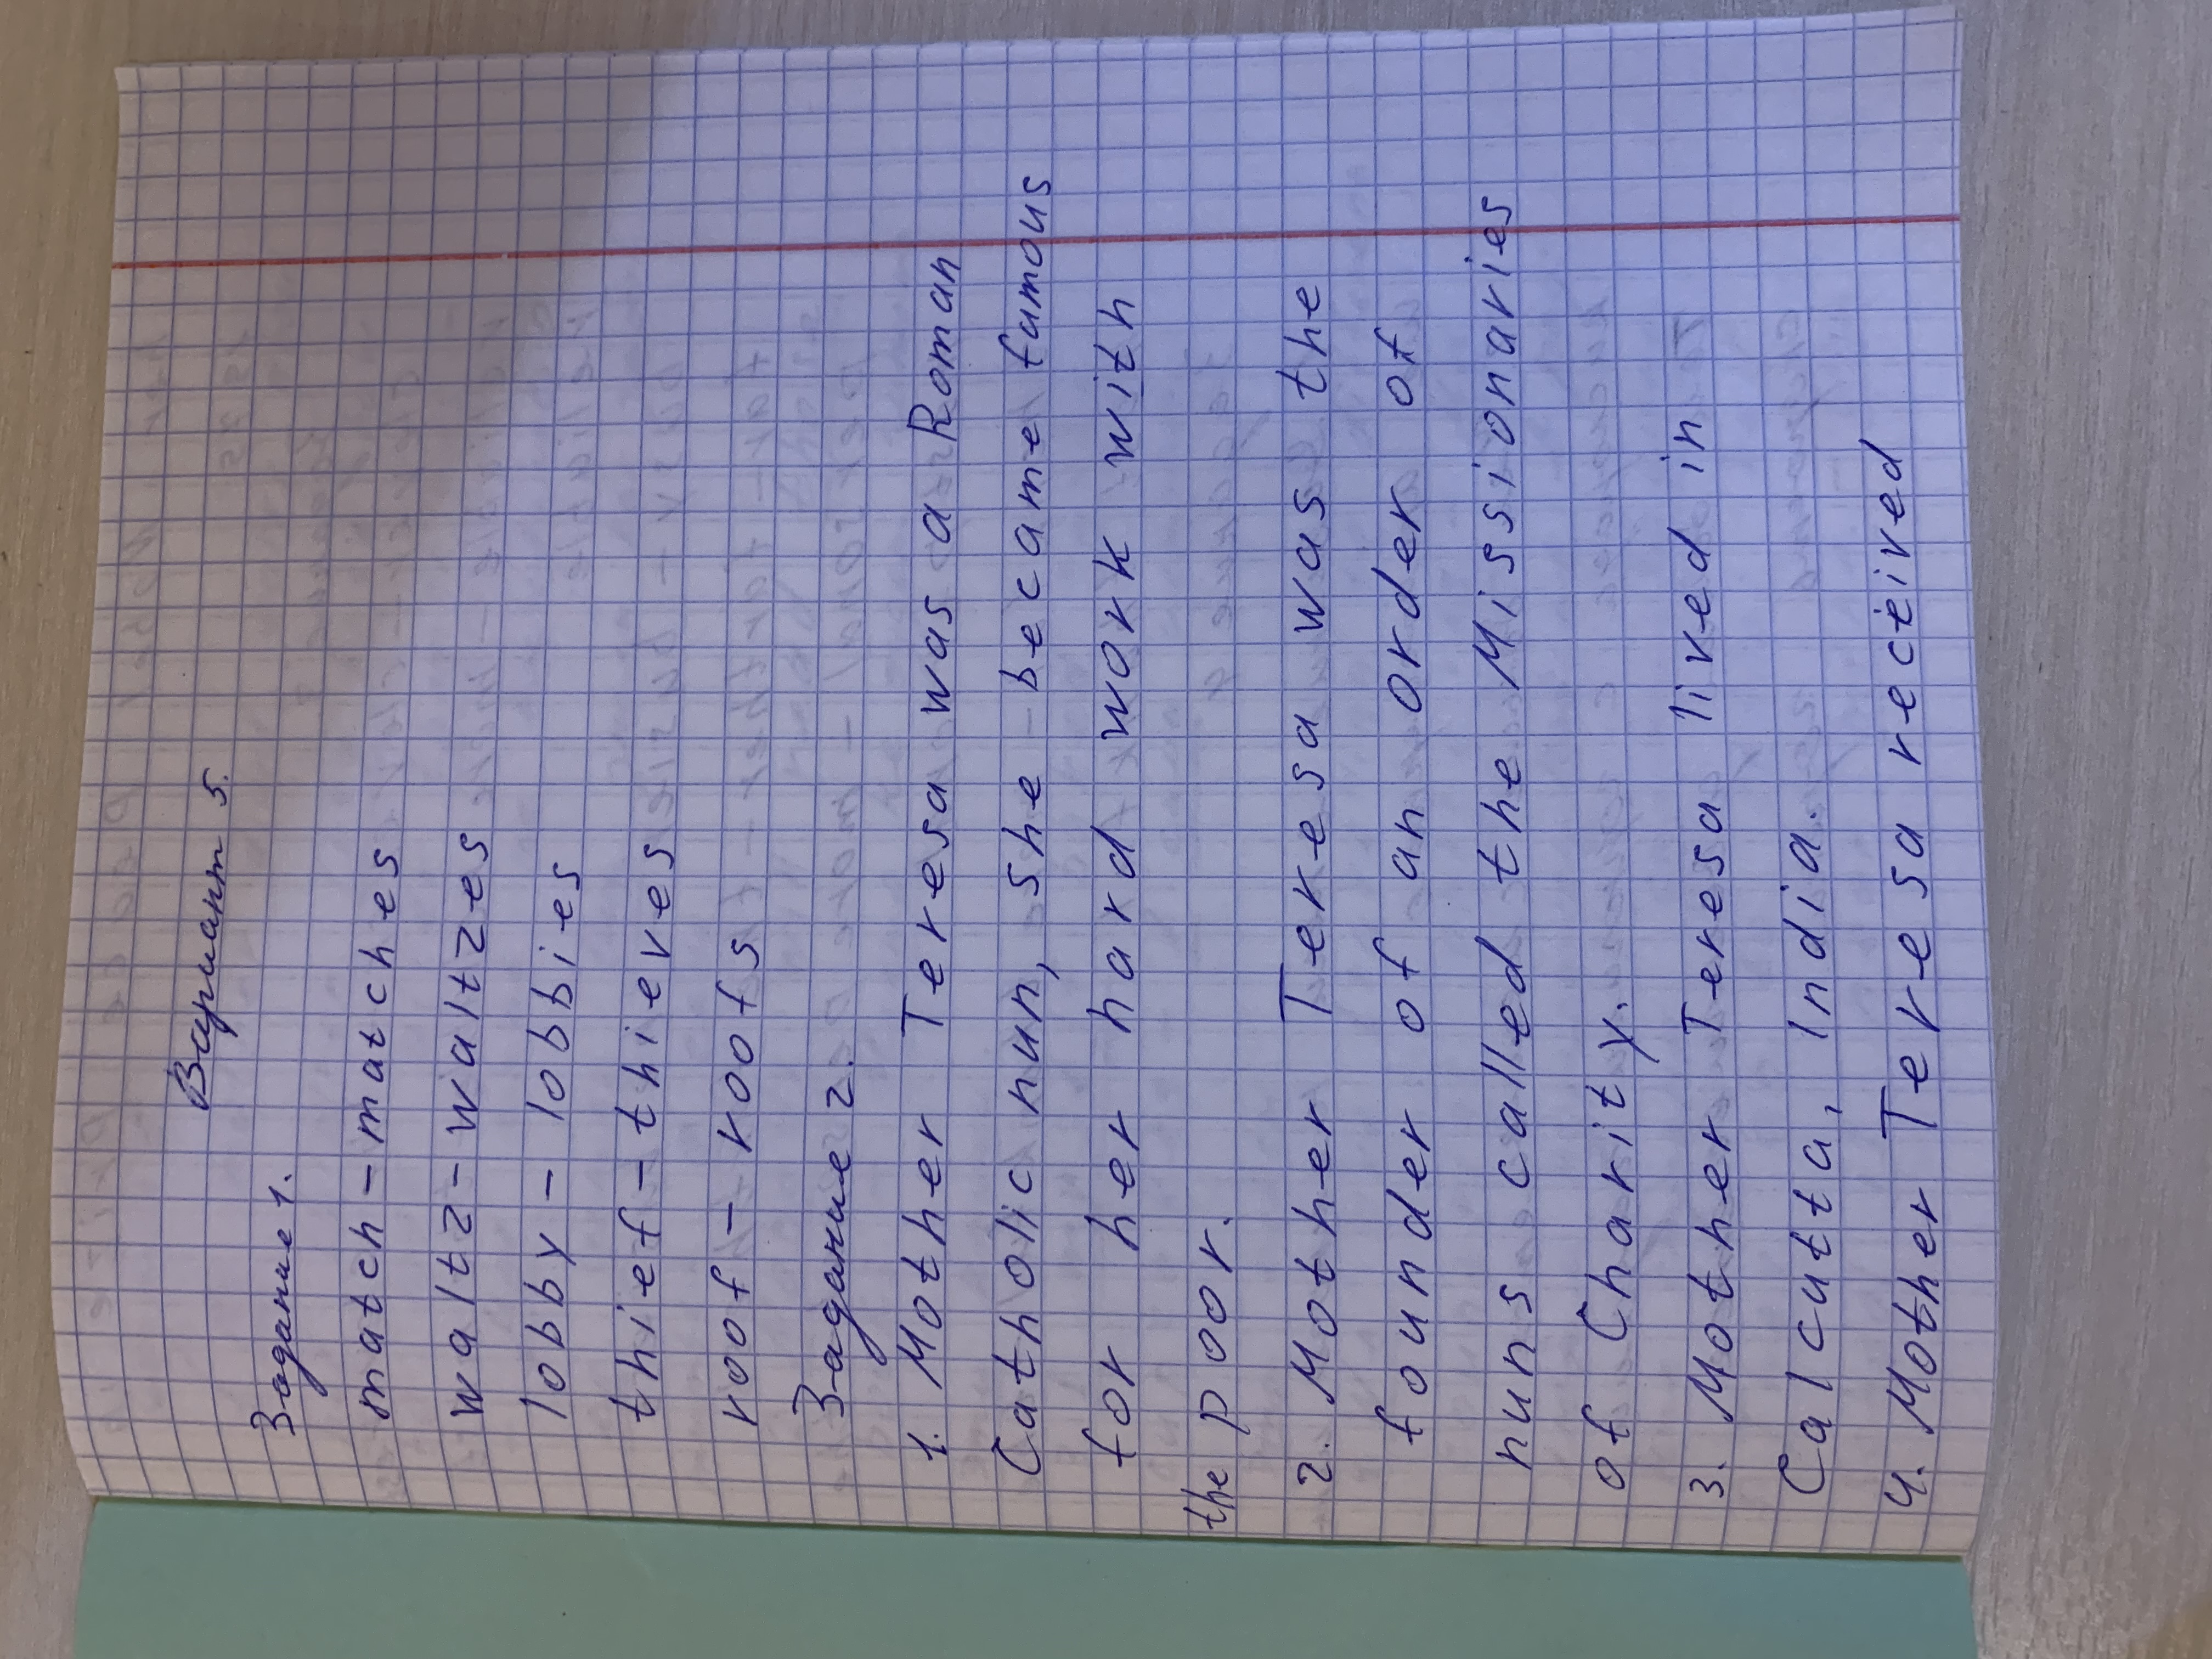 Вариант 5.
Задание 1.
match - matches
waltz - waltzes
lobby - lobbies
thief - thieves
roof - roofs
Задание 2.
1. Mother Teresa was a Roman
Catholic nun, she became famous
for her hard work with
the poor.
2. Mother Teresa was the
founder of an order of
nuns called the Missionaries
of Charity.
3. Mother Teresa lived in
Calcutta, India.
4. Mother Teresa received